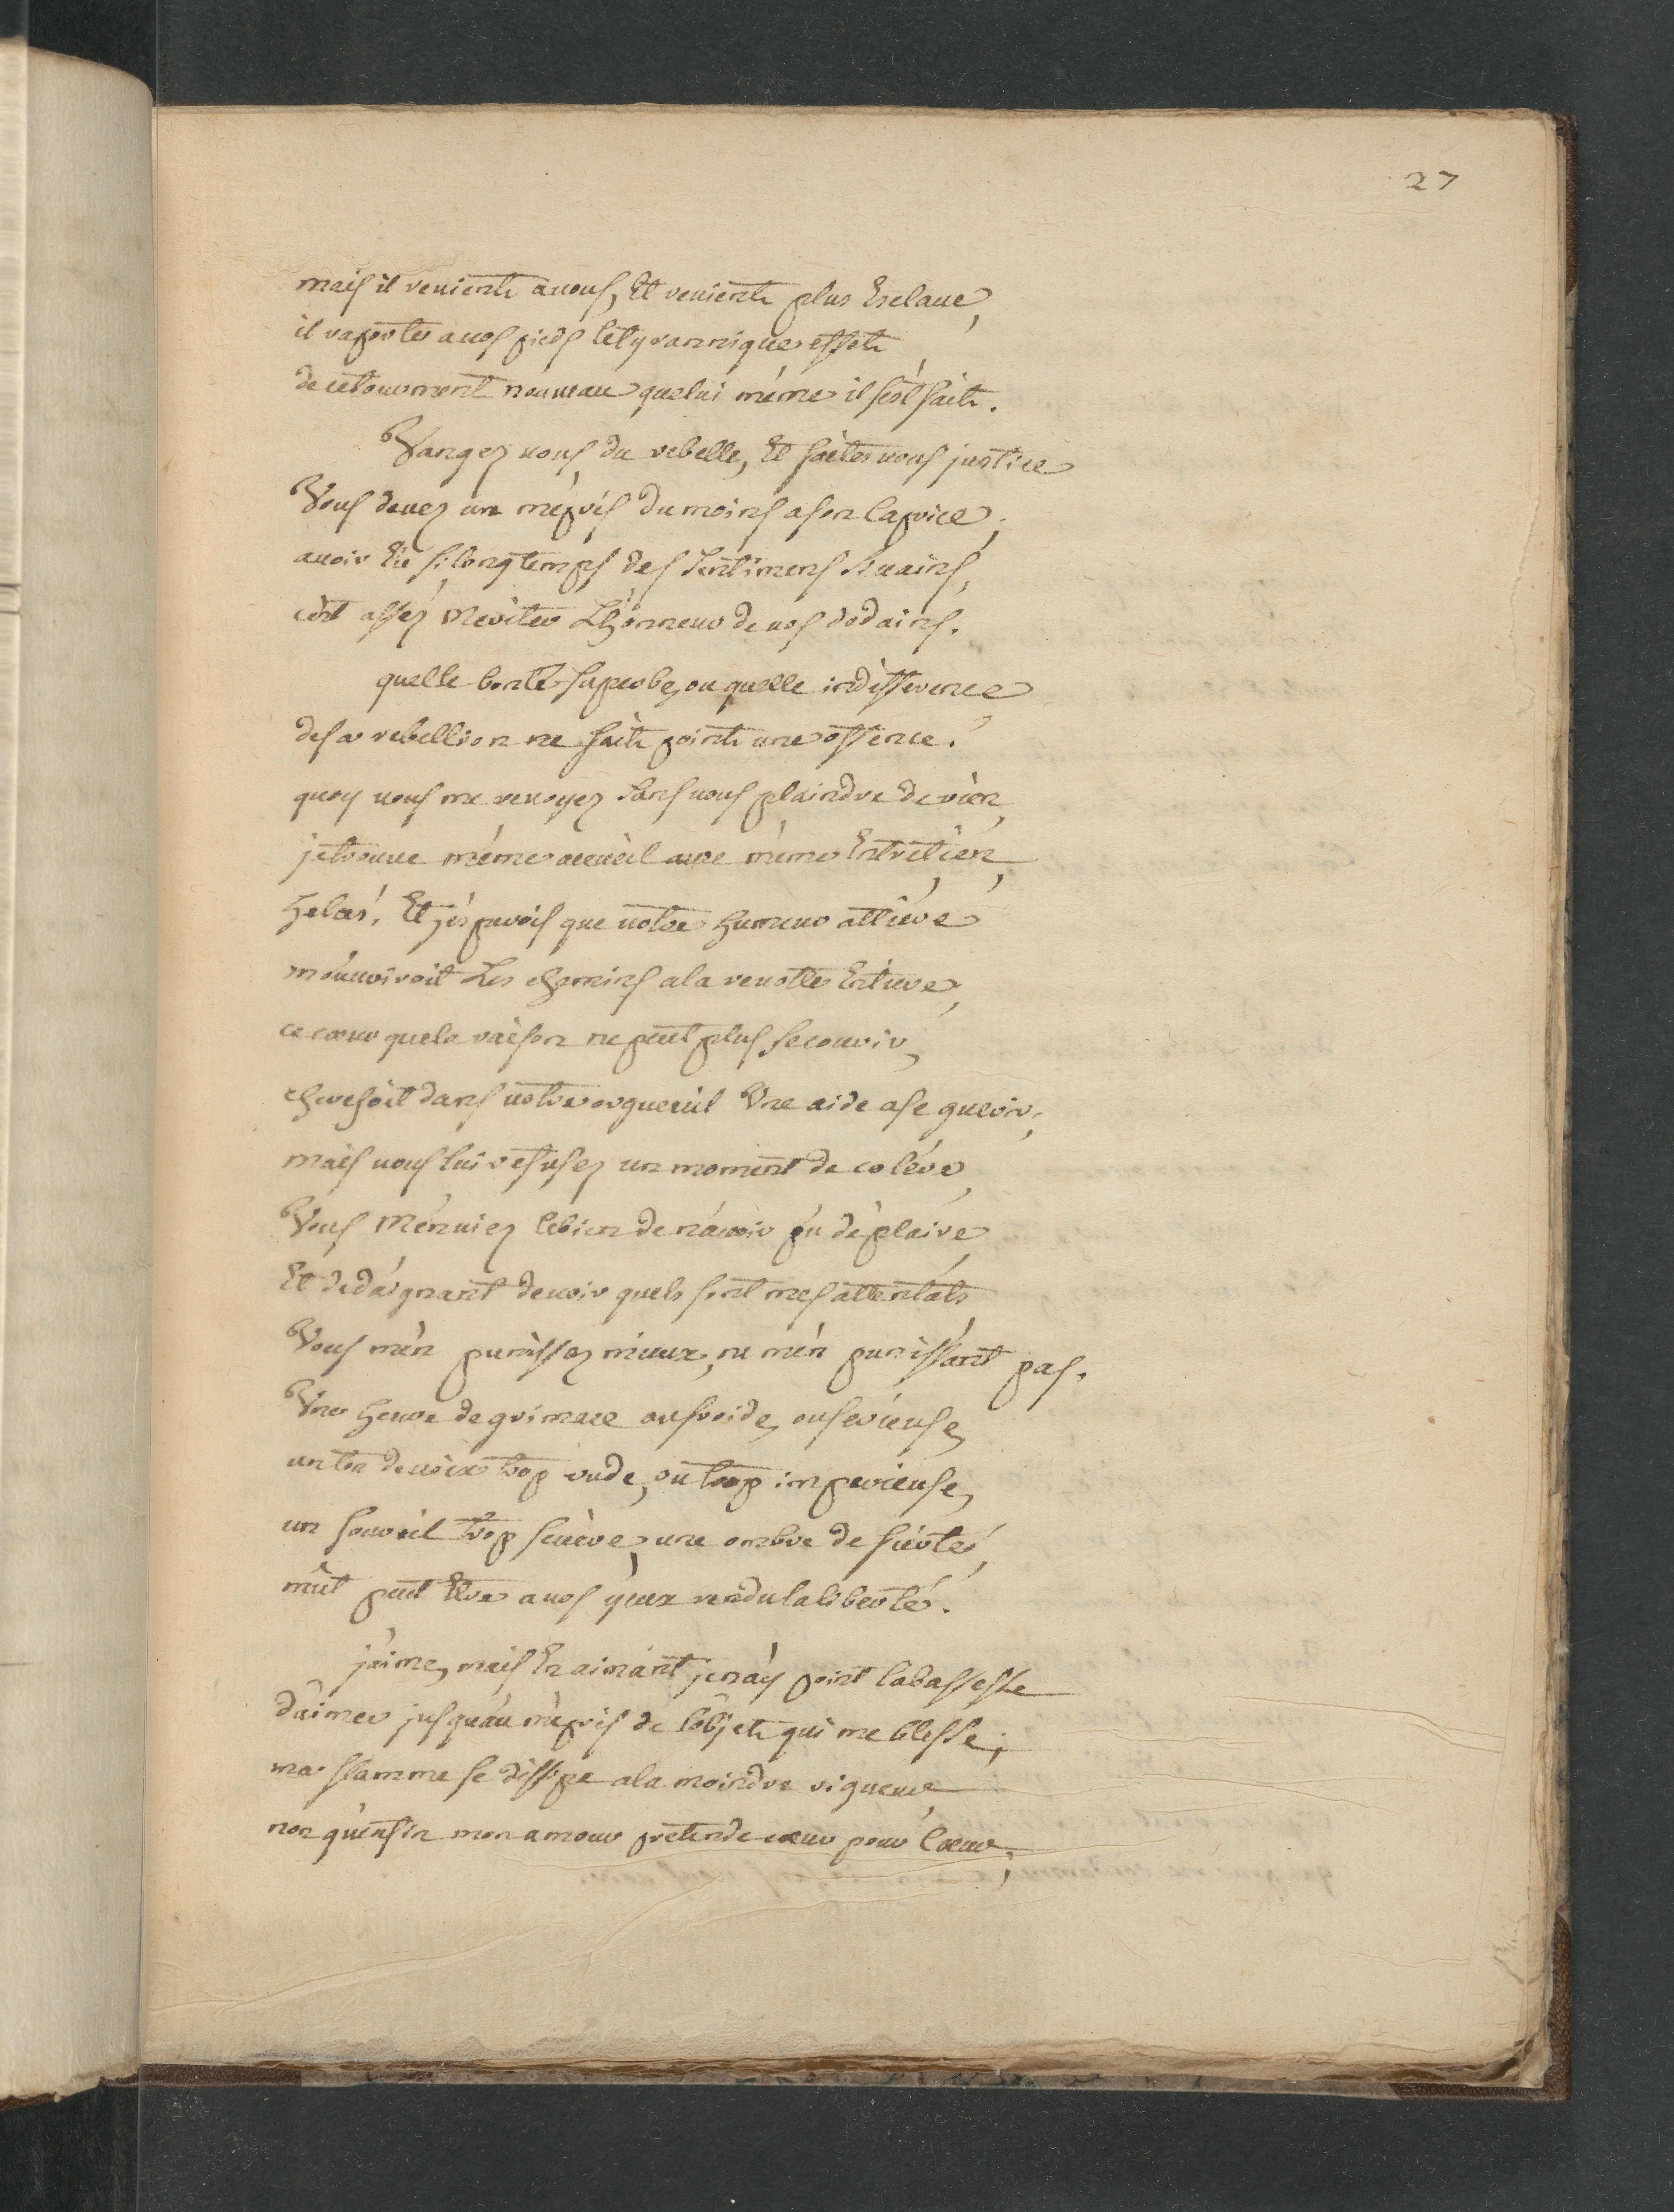 27
mais il revient avous, Et revient plus Esclave,
il raporte avos pieds le tyrannique effet
de ce tourment nouveau que lui méme il s'est fait.
Vangez vous du rebelle, Et faites vous justice
Vous devez un mépris du moins a son Caprice,
avoir Eü si longtemps des sentimens si vains,
cést assez Meriter L'hónneur de vos dedains.
quelle bonté superbe, ou quelle indifference
de sa rebellion ne fait point une offence?
quoy vous me revoyez sans vous plaindre de rièn,
je trouve méme accueil avec méme Entretièn,
helas! Et j'espérois que votre humeur altiére
m'ouvriroit Les chemins a la revolte Entiere,
ce coeur que la raison ne peut plus secourir,
cherchoit dans votre orgueüil Une aide a se guerir,
mais vous lui refusez un moment de colére,
Vous M'énviez le bien de n'avoir pu déplaire
Et dédaignant de voir quels sont mes attentats
Vous m'én punissez mieux, ne m'én punissant pas.
Une heure de grimace ou froide, ou serieuse,
un ton de voix trop rude, ou trop imperieuse,
un sourcil trop severe, une ombre de fierté,
m'ût peut Etre a vos yeux rendu la liberté.
j'aime, mais En aimant je n'ay point la bassesse
d'aimer jusqu'au mépris de l'objet qui me blesse;
ma flamme se dissipe a la moindre rigueur
non qu'enfin mon amour prétende coeur pour Coeur;